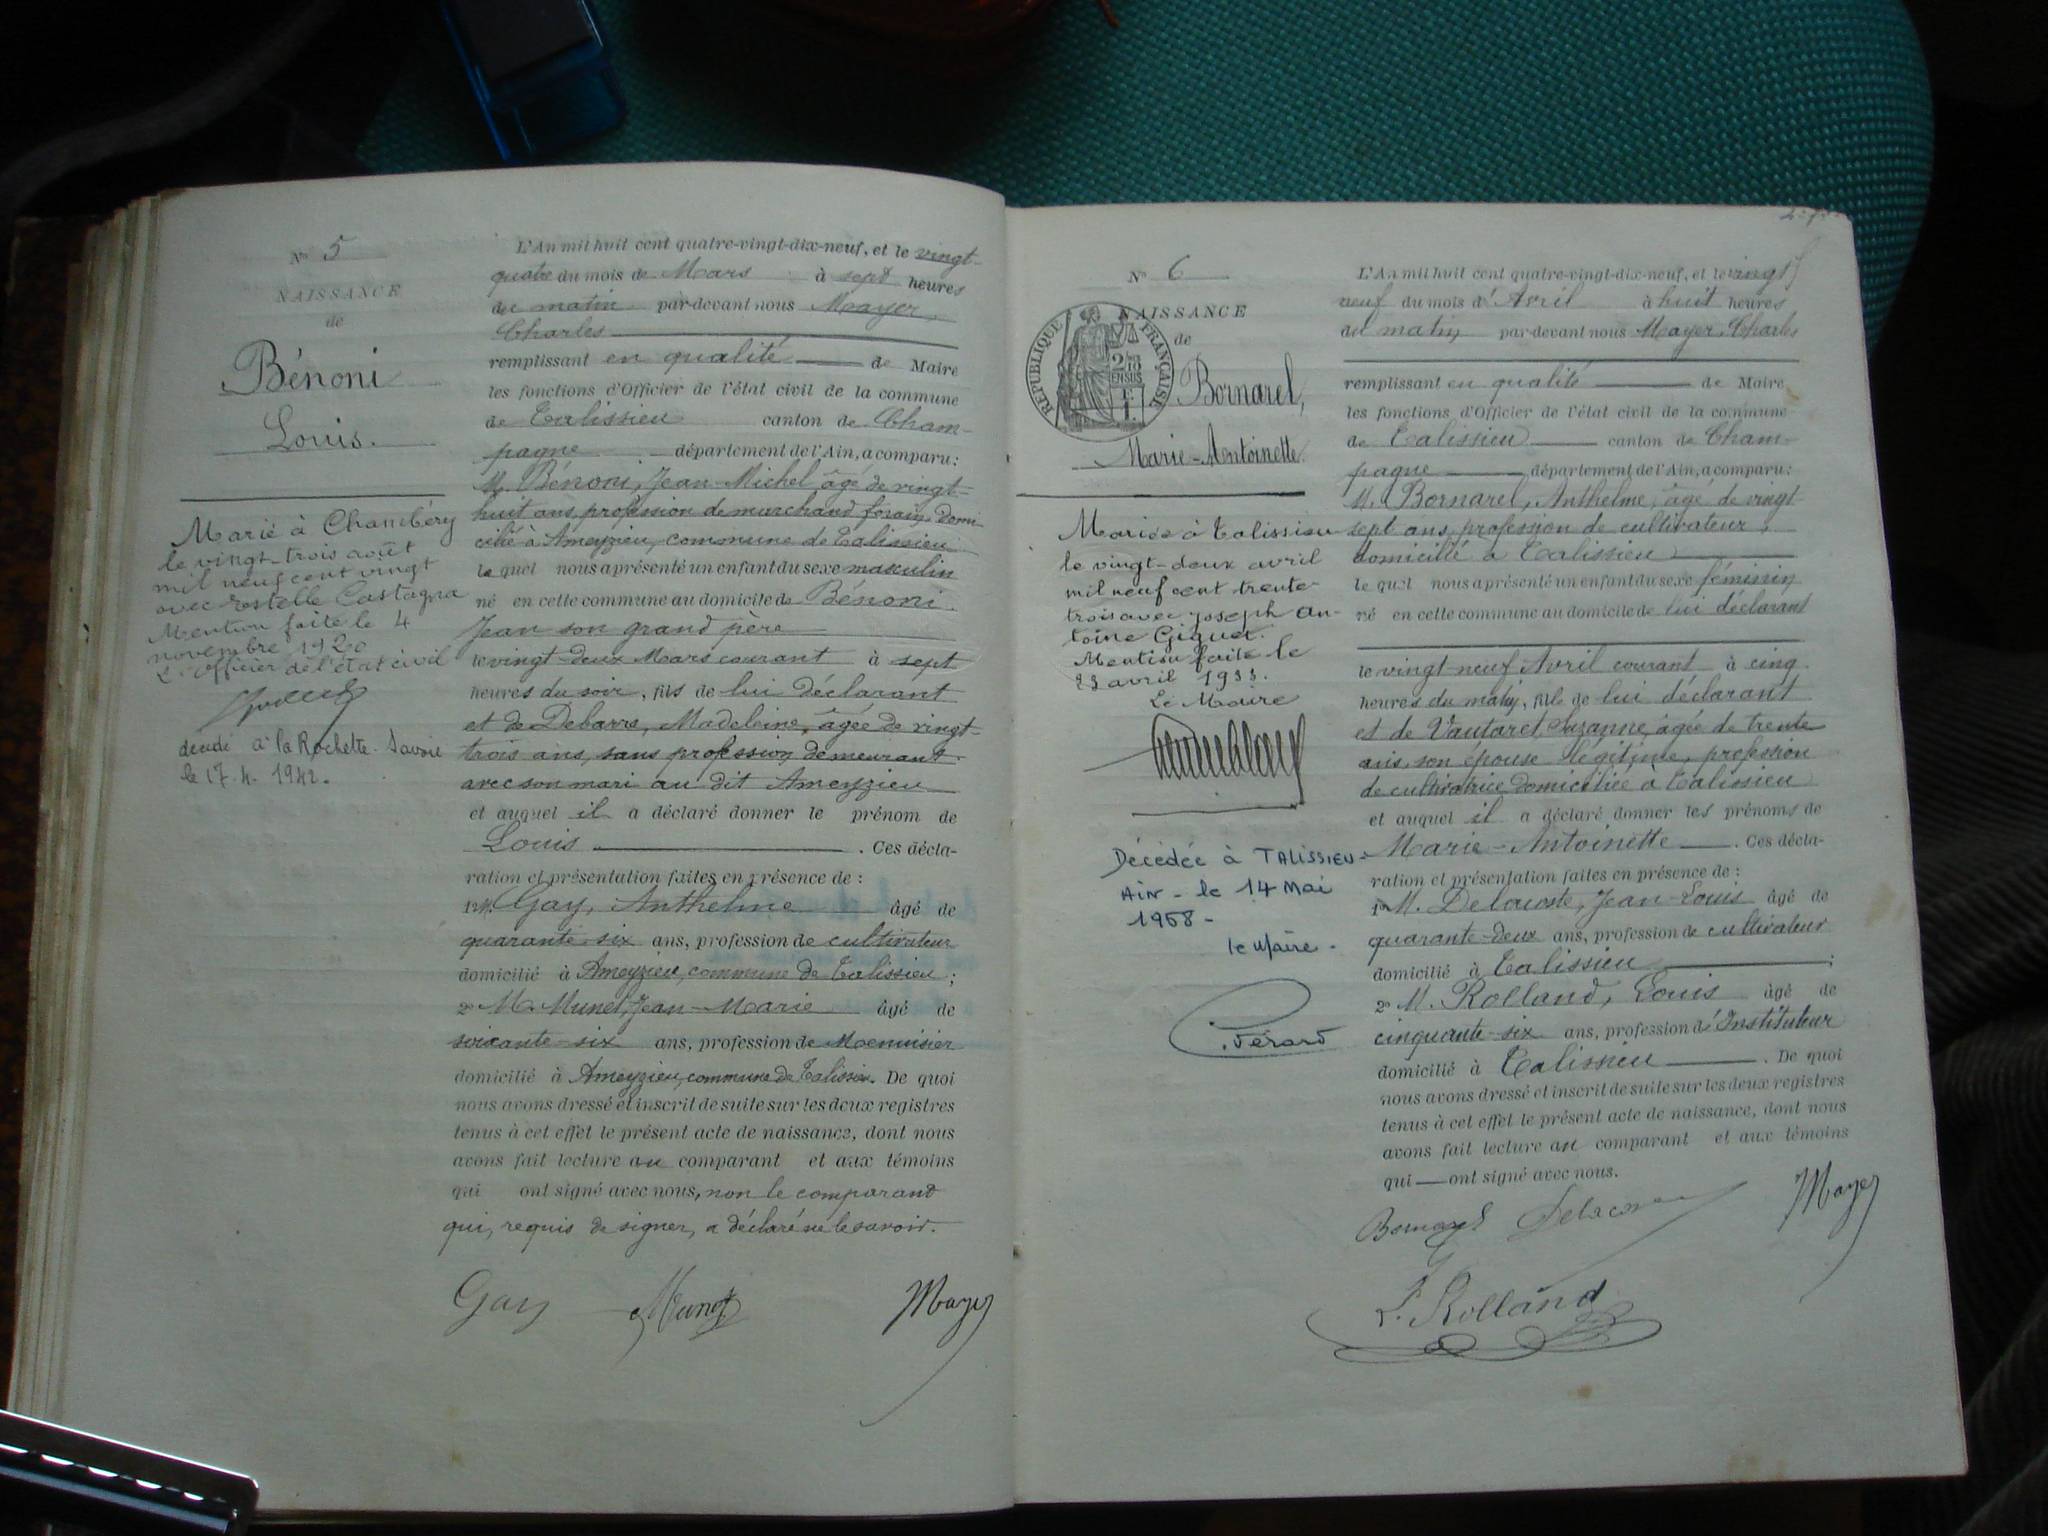 N° 5
NAISSANCE
de
Bénoni
Louis.
Marié à Chambéry
le vingt-trois août
mil neuf cent vingt
avec Estelle Castagna
Mention faite le 4
novembre 1920
L'officier de l'état civil
décédé à la Rochette-Savoie
le 17.4.1942.
L'An mil huit cent quatre-vingt-dix-neuf, et le vingt-
quatre du mois de Mars à sept heures
du matin par-devant nous Mayer
Charles
remplissant en qualité de Maire
les fonctions d'Officier de l'état civil de la commune
de Talissieu canton de Cham-
pagne département de l'Ain, a comparu:
M. Bénoni, Jean-Michel âgé de vingt-
huit ans, profession de marchand forain, domi-
cilié à Ameyzieu, commune de Talissieu
lequel nous a présenté un enfant du sexe masculin
né en cette commune au domicile de Bénoni
Jean son grand père
le vingt-deux Mars courant à sept
heures du soir, fils de lui déclarant
et de Debarre, Madeleine, âgée de vingt-
trois ans, sans profession, demeurant
avec son mari au dit Ameyzieu
et auquel il a déclaré donner le prénom de
Louis . Ces décla-
ration et présentation faites en présence de :
1° M. Gay, Anthelme âgé de
quarante-six ans, profession de cultivateur
domicilié à Ameyzieu, commune de Talissieu ;
2° M. Munet, Jean-Marie âgé de
soixante-six ans, profession de Menuisier
domicilié à Ameyzieu, commune de Talissieu. De quoi
nous avons dressé et inscrit de suite sur les deux registres
tenus à cet effet le présent acte de naissance, dont nous
avons fait lecture au comparant et aux témoins
qui ont signé avec nous, non le comparand
qui, requis de signer, a déclaré ne le savoir.
Gay Munet Mayer
N° 6
NAISSANCE
de
RÉPUBLIQUE FRANÇAISE
2/10
EN SUS
Bornarel,
Marie-Antoinette.
Mariée à Talissieu
le vingt-deux avril
mil neuf cent trente-
trois avec Joseph An-
toine Giguet.
Mention faite le
23 avril 1933.
Le Maire
Décédée à TALISSIEU-
AIN - le 14 Mai
1968 -
le Maire -
L'An mil huit cent quatre-vingt-dix-neuf, et le vingt
neuf du mois d'Avril à huit heures
du matin par-devant nous Mayer, Charles
remplissant en qualité de Maire
les fonctions d'Officier de l'état civil de la commune
de Talissieu canton de Cham-
pagne département de l'Ain, a comparu:
M. Bornarel, Anthelme, âgé de vingt
sept ans, profession de cultivateur,
domicilié à Talissieu
lequel nous a présenté un enfant du sexe féminin
né en cette commune au domicile de lui déclarant
le vingt-neuf Avril courant à cinq
heures du matin, fille de lui déclarant
et de Vautaret, Suzanne, âgée de trente
ans, son épouse légitime, profession
de cultivatrice domiciliée à Talissieu
et auquel il a déclaré donner les prénoms de
Marie-Antoinette . Ces décla-
ration et présentation faites en présence de :
1° M. Delacoste, Jean-Louis âgé de
quarante-deux ans, profession de cultivateur
domicilié à Talissieu ;
2° M. Rolland, Louis âgé de
cinquante-six ans, profession d'Instituteur
domicilié à Talissieu . De quoi
nous avons dressé et inscrit de suite sur les deux registres
tenus à cet effet le présent acte de naissance, dont nous
avons fait lecture au comparant et aux témoins
qui ont signé avec nous.
Bornarel Mayer
L. Rolland